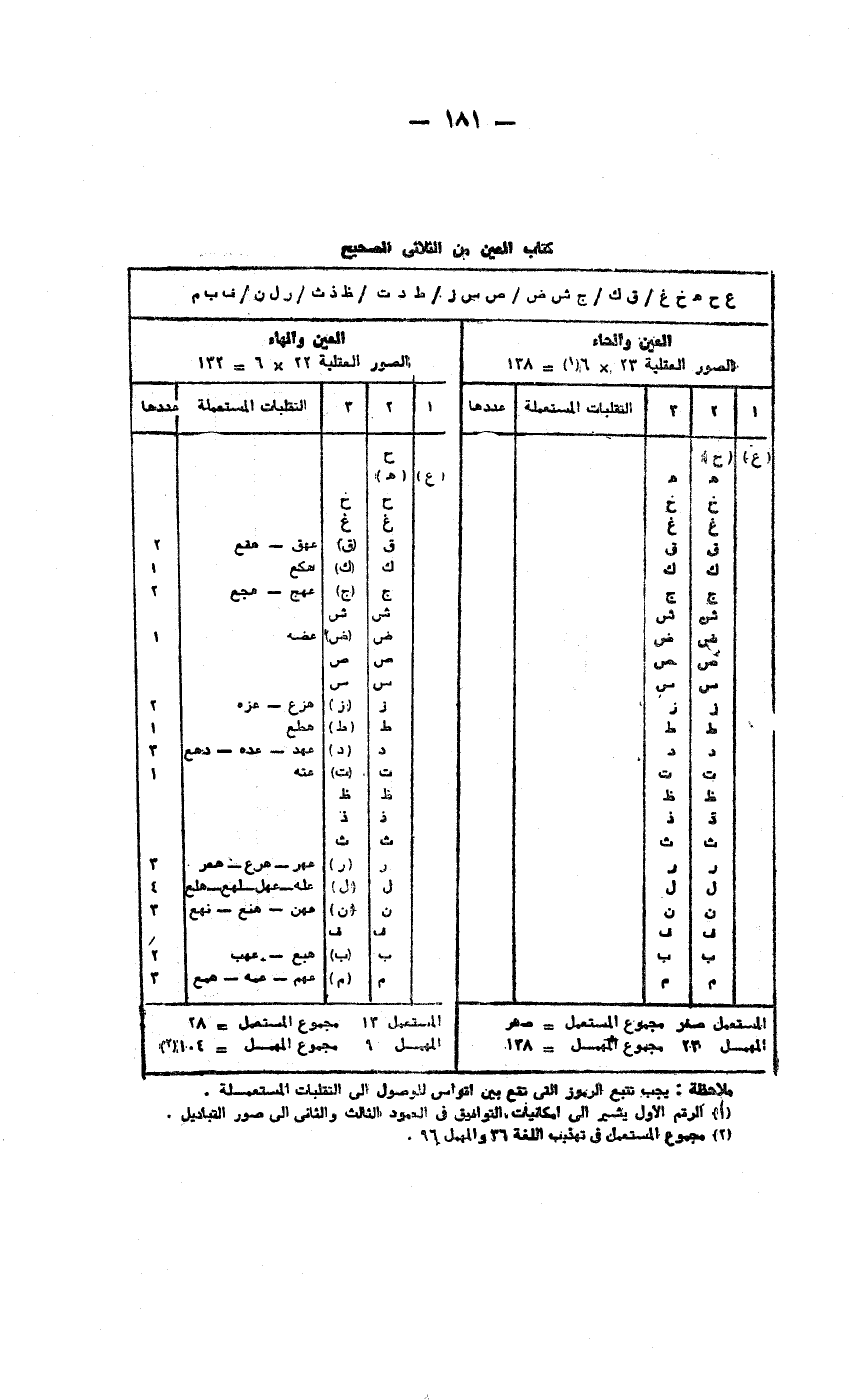 — ١٨١ —
كتاب العين من الثلاثى الصحيح
ع ح ه خ غ / ق ك / ج ش ض / ص س ز / ط د ت / ظ ذ ث / ر ل ن / ف ب م
العين والحاء
الصور العقلية ٢٣ × ٦ (١) = ١٣٨
١ ٢ ٣ التقلبات المستعملة عددها
(ع) (ح)
ه ه
خ خ
غ غ
ق ق
ك ك
ج ج
ش ش
ض ض
ص ص
س س
ز ز
ط ط
د د
ت ت
ظ ظ
ق ذ
ث ث
ر ر
ل ل
ن ن
ف ف
ب ب
م م
المستعمل صفر مجموع المستعمل = صفر
المهمل ٢٣ مجموع المهمل = ١٣٨
العين والهاء
الصور العقلية ٢٢ × ٦ = ١٣٢
١ ٢ ٣ التقلبات المستعملة عددها
ح
(ع) (ه)
خ خ
غ غ
ق (ق) عهق — هقع ٢
ك (ك) هكع ١
ج (ج) عهج — هجع ٢
ش ش
ض (ض) عضه ١
ص ص
س س
ز (ز) هزع — عزه ٢
ط (ط) هطع ١
د (د) عهد — عده — دهع ٣
ت (ت) عته ١
ظ ظ
ذ ذ
ث ث
ر (ر) عهر — هرع — همر ٣
ل (ل) عله — عهل — لهع — هلع ٤
ن (ن) عهن — هنع — نهع ٣
ف ف
ب (ب) هبع — عهب ٢
م (م) عهم — عمه — همع ٣
المستعمل ١٣ مجموع المستعمل = ٢٨
المهمل ٩ مجموع المهمل = ١٠٤(٢)
ملاحظة : يجب تتبع الرموز التى تقع بين اقواس للوصول الى التقلبات المستعملة .
(١) الرقم الأول يشير الى امكانيات التوافيق فى العمود الثالث والثانى الى صور التباديل .
(٢) مجموع المستعمل فى تهذيب اللغة ٣٦ والمهمل ٩٦ .